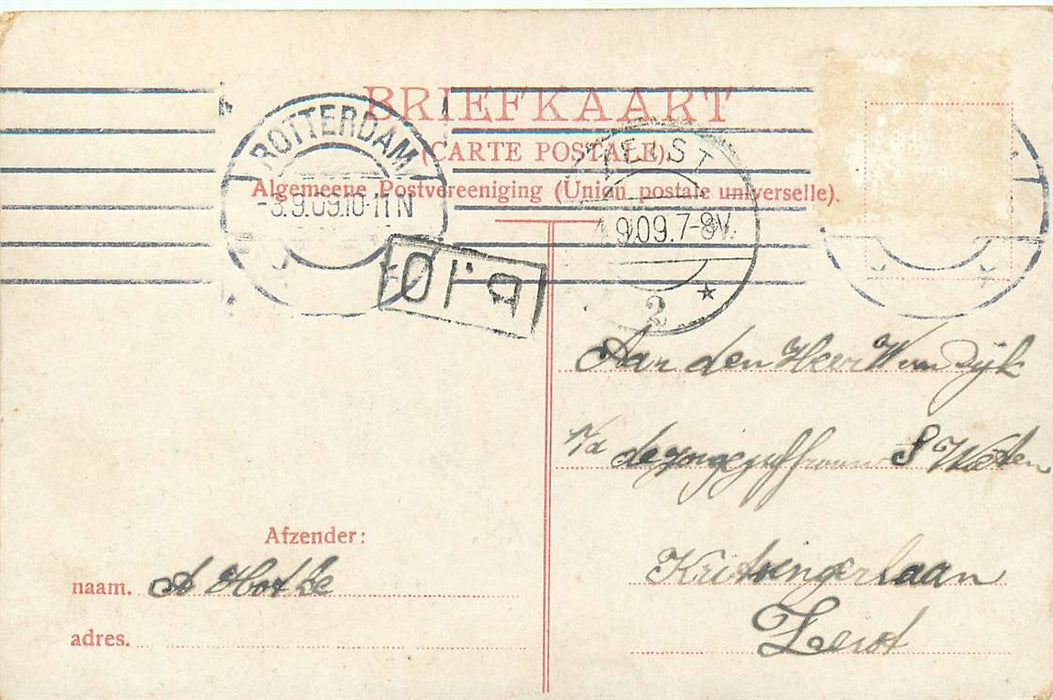 BRIEFKAART
(CARTE POSTALE).
Algemeene Postvereeniging (Union postale universelle).
ROTTERDAM
-3.9.09.10-11N
ZEIST
4.9.09.7-8V.
2
Aan den Heer W van Dijk
p/a de jonge juffrouw S
Kritzingerlaan
Zeist
Afzender:
naam. A
adres.